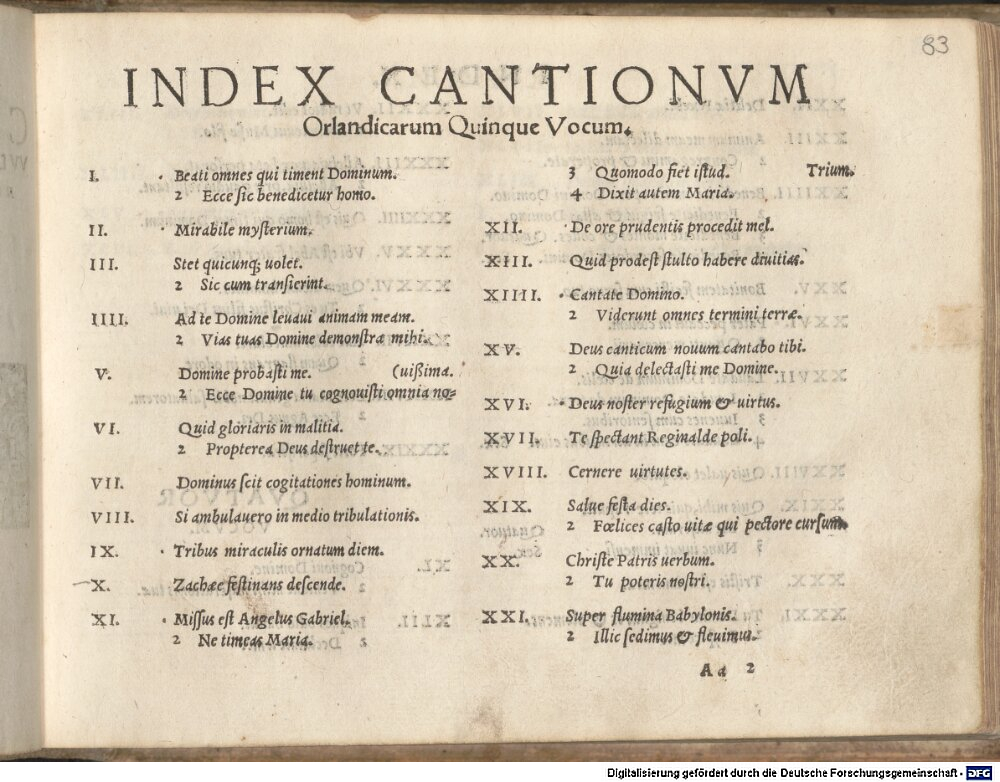 83
INDEX CANTIONVM
Orlandicarum Quinque Vocum.
I. Beati omnes qui timent Dominum.
2 Ecce sic benedicetur homo.
II. Mirabile mysterium.
III. Stet quicunq; uolet.
2 Sic cum transierint.
IIII. Ad te Domine leuaui animam meam.
2 Vias tuas Domine demonstra mihi.
V. Domine probasti me. (uißima.
2 Ecce Domine tu cognouisti omnia no=
VI. Quid gloriaris in malitia.
2 Propterea Deus destruet te.
VII. Dominus scit cogitationes hominum.
VIII. Si ambulauero in medio tribulationis.
IX. Tribus miraculis ornatum diem.
X. Zachæe festinans descende.
XI. Missus est Angelus Gabriel.
2 Ne timeas Maria.
3 Quomodo fiet istud. Trium.
4 Dixit autem Maria.
XII. De ore prudentis procedit mel.
XIII. Quid prodest stulto habere diuitias.
XIIII. Cantate Domino.
2 Viderunt omnes termini terræ.
XV. Deus canticum nouum cantabo tibi.
2 Quia delectasti me Domine.
XVI. Deus noster refugium & uirtus.
XVII. Te spectant Reginalde poli.
XVIII. Cernere uirtutes.
XIX. Salue festa dies.
2 Fœlices casto uitæ qui pectore cursum.
XX. Christe Patris uerbum.
2 Tu poteris nostri.
XXI. Super flumina Babylonis.
2 Illic sedimus & fleuimus.
Aa 2
Digitalisierung gefördert durch die Deutsche Forschungsgemeinschaft - DFG